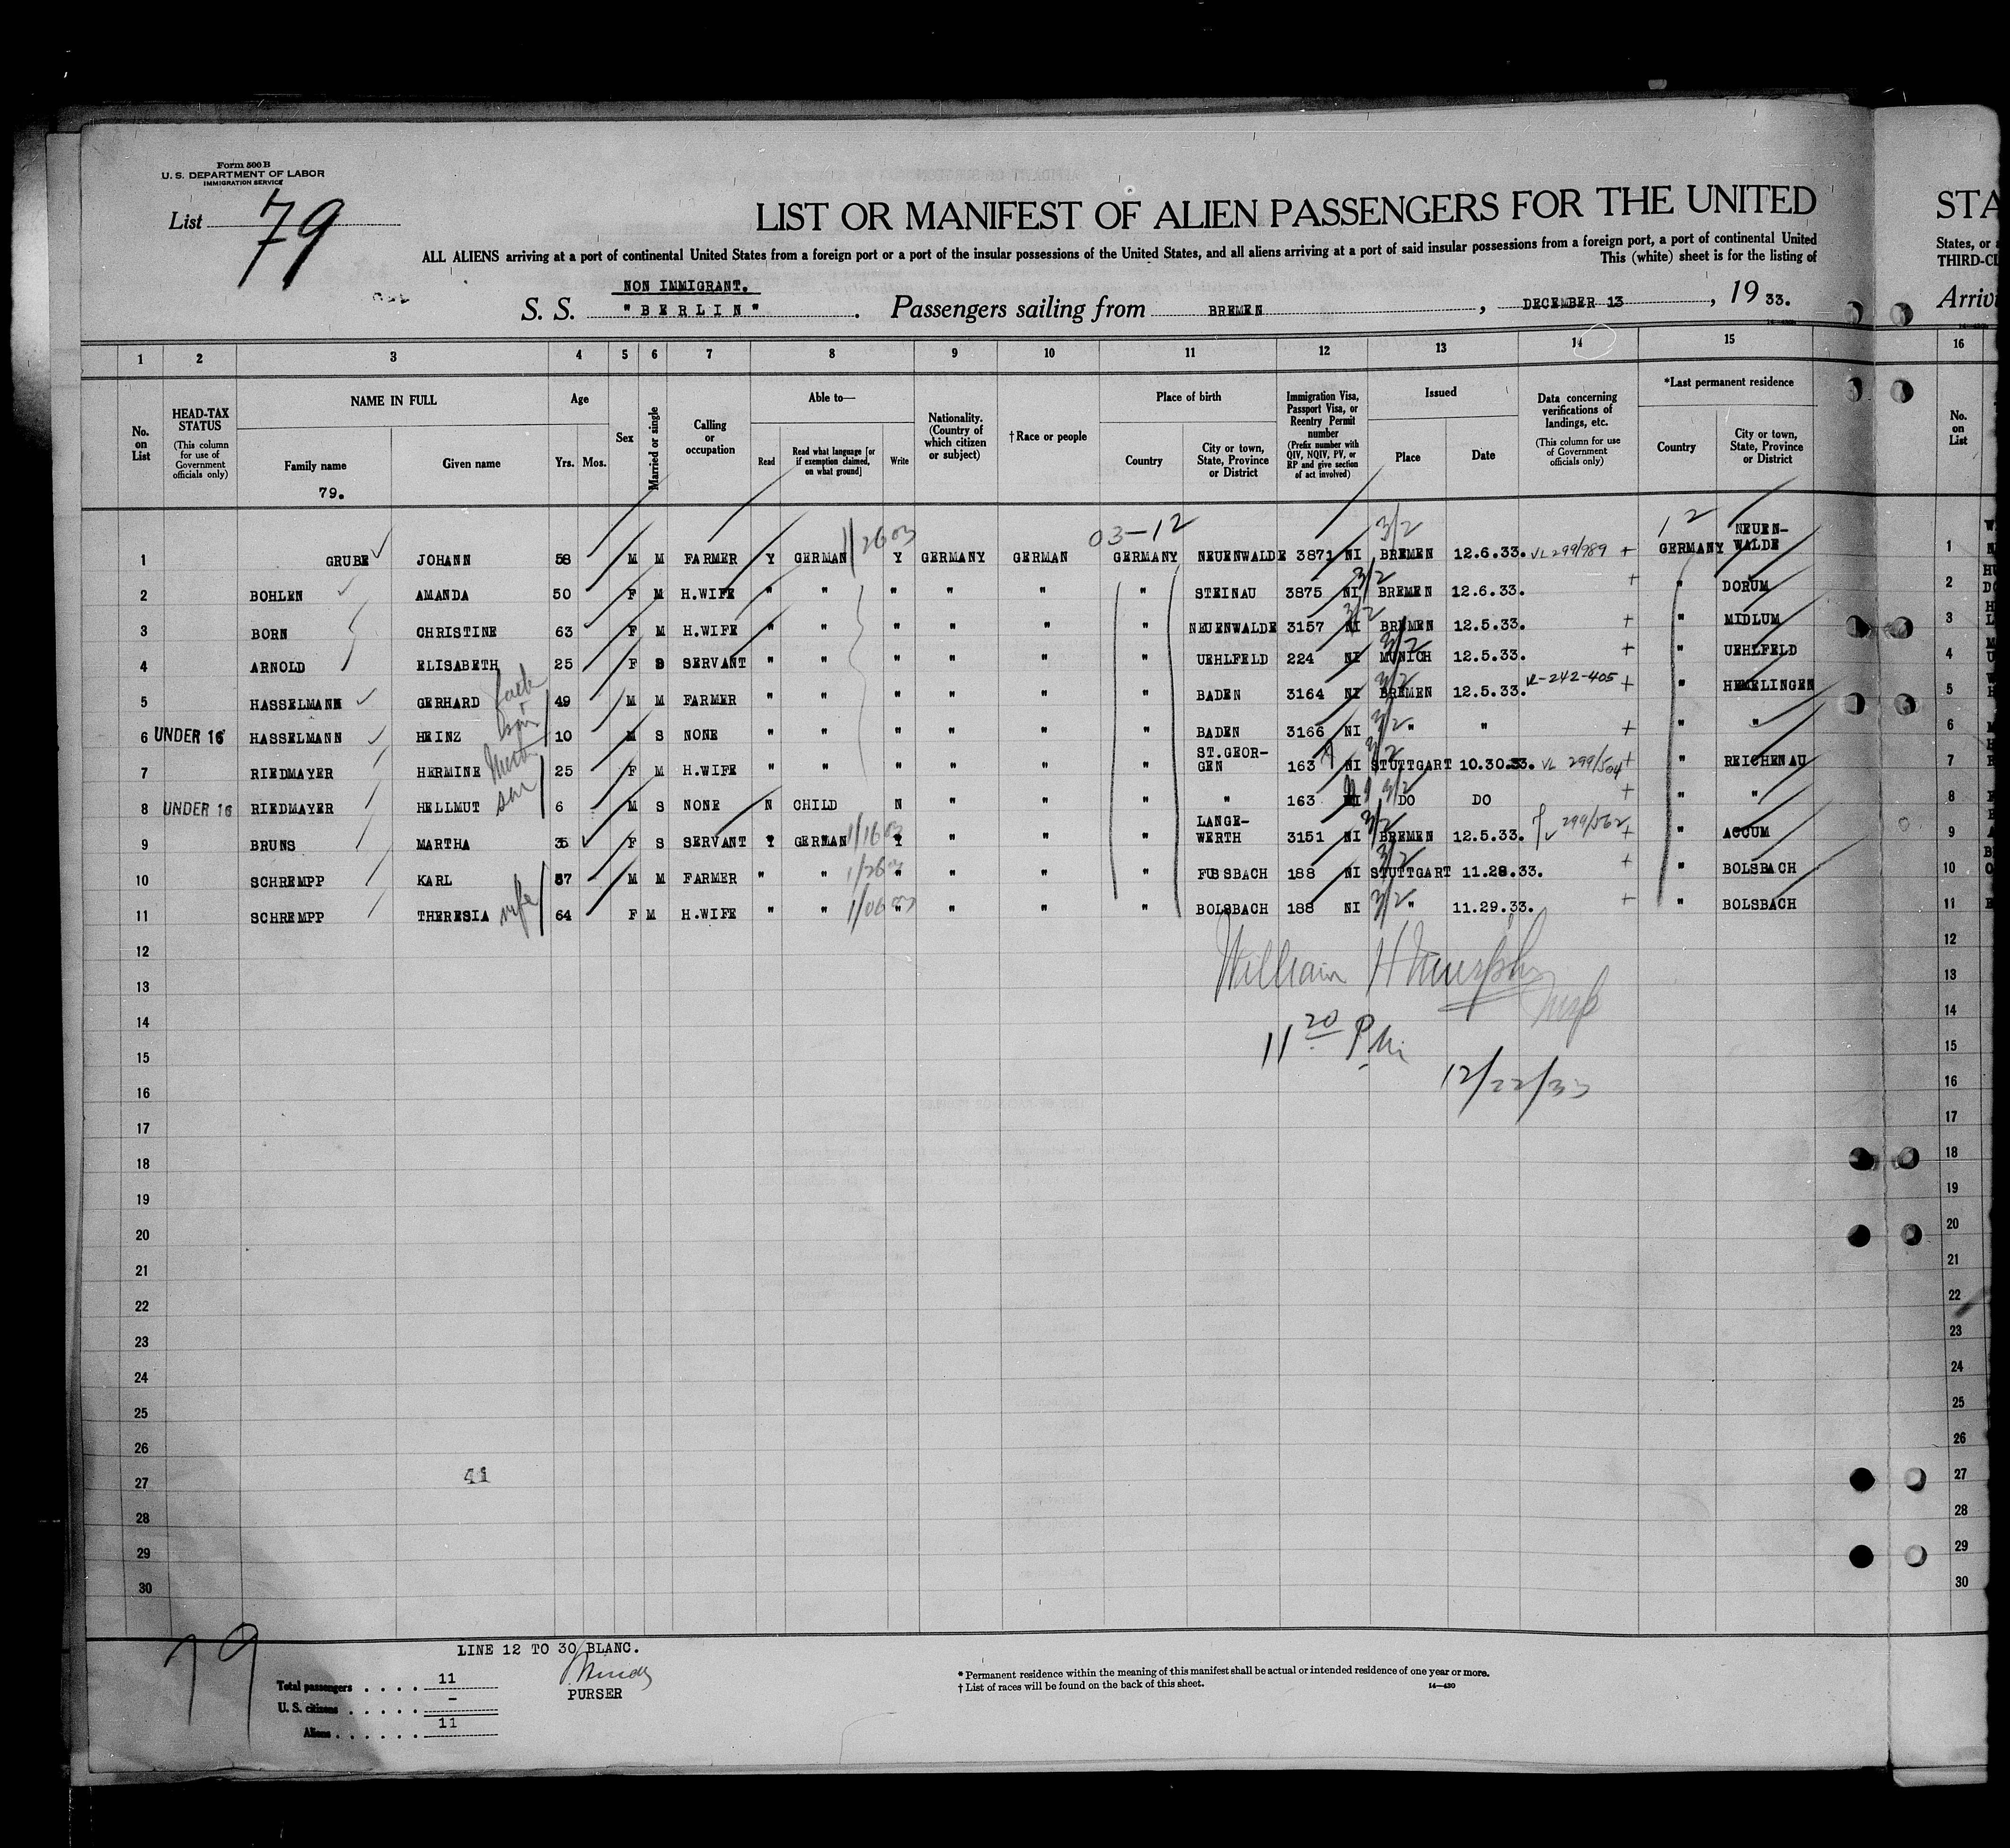 Form 500 B
U. S. DEPARTMENT OF LABOR
IMMIGRATION SERVICE
List 79
LIST OR MANIFEST OF ALIEN PASSENGERS FOR THE UNITED
ALL ALIENS arriving at a port of continental United States from a foreign port or a port of the insular possessions of the United States, and all aliens arriving at a port of said insular possessions from a foreign port, a port of continental United
This (white) sheet is for the listing of
NON IMMIGRANT.
S. S. "BERLIN". Passengers sailing from BREMEN, DECEMBER 13, 19 33.
STA
States, or a
THIRD-CL
Arrivi
1 2 3 4 5 6 7 8 9 10 11 12 13 14 15 16
No. on List
HEAD-TAX STATUS
(This column for use of Government officials only)
NAME IN FULL
Family name
Given name
79.
Age
Yrs. Mos.
Sex
Married or single
Calling or occupation
Able to—
Read
Read what language [or if exemption claimed, on what ground]
Write
Nationality. (Country of which citizen or subject)
† Race or people
Place of birth
Country
City or town, State, Province or District
Immigration Visa, Passport Visa, or Reentry Permit number
(Prefix number with QIV, NQIV, PV, or RP and give section of act involved)
Issued
Place
Date
Data concerning verifications of landings, etc.
(This column for use of Government officials only)
*Last permanent residence
Country
City or town, State, Province or District
No. on List
03-12
3/2
12
1 GRUBE JOHANN 58 M M FARMER Y GERMAN Y GERMANY GERMAN GERMANY NEUENWALDE 3871 NI BREMEN 12.6.33. VL 299/989 + GERMANY NEUEN-WALDE 1
2 BOHLEN AMANDA 50 F M H.WIFE " " " " " " STEINAU 3875 NI 3/2 BREMEN 12.6.33. + " DORUM 2
3 BORN CHRISTINE 63 F M H.WIFE " " " " " " NEUENWALDE 3157 NI 3/2 BREMEN 12.5.33. + " MIDLUM 3
4 ARNOLD ELISABETH 25 F S SERVANT " " " " " " UEHLFELD 224 NI 3/2 MUNICH 12.5.33. + " UEHLFELD 4
5 HASSELMANN GERHARD 49 M M FARMER " " " " " " BADEN 3164 NI 3/2 BREMEN 12.5.33. VL-242-405 + " HEMELINGEN 5
6 UNDER 16 HASSELMANN HEINZ son 10 M S NONE " " " " " " BADEN 3166 NI 3/2 " " + " " 6
7 RIEDMAYER HERMINE 25 F M H.WIFE " " " " " " ST.GEOR-GEN 163 NI 3/2 STUTTGART 10.30.33. VL 299/504 + " REICHENAU 7
8 UNDER 16 RIEDMAYER HELLMUT son 6 M S NONE N CHILD N " " " " 163 NI 3/2 DO DO + " " 8
9 BRUNS MARTHA 35 F S SERVANT Y GERMAN Y " " " LANGE-WERTH 3151 NI 3/2 BREMEN 12.5.33. 299/562 + " ACCUM 9
10 SCHREMPP KARL 67 M M FARMER " " " " " " FUSSBACH 188 NI 3/2 STUTTGART 11.28.33. + " BOLSBACH 10
11 SCHREMPP THERESIA wife 64 F M H.WIFE " " " " " " BOLSBACH 188 NI 3/2 " 11.29.33. + " BOLSBACH 11
12 12
13 William H Murphy 13
14 Insp 14
15 11 20 PM 15
16 12/22/33 16
17 17
18 18
19 19
20 20
21 21
22 22
23 23
24 24
25 25
26 26
27 41 27
28 28
29 29
30 30
79
LINE 12 TO 30 BLANC.
Total passengers . . . . 11
U. S. citizens . . . . . –
Aliens . . . . . . 11
PURSER
* Permanent residence within the meaning of this manifest shall be actual or intended residence of one year or more.
† List of races will be found on the back of this sheet.
14—430